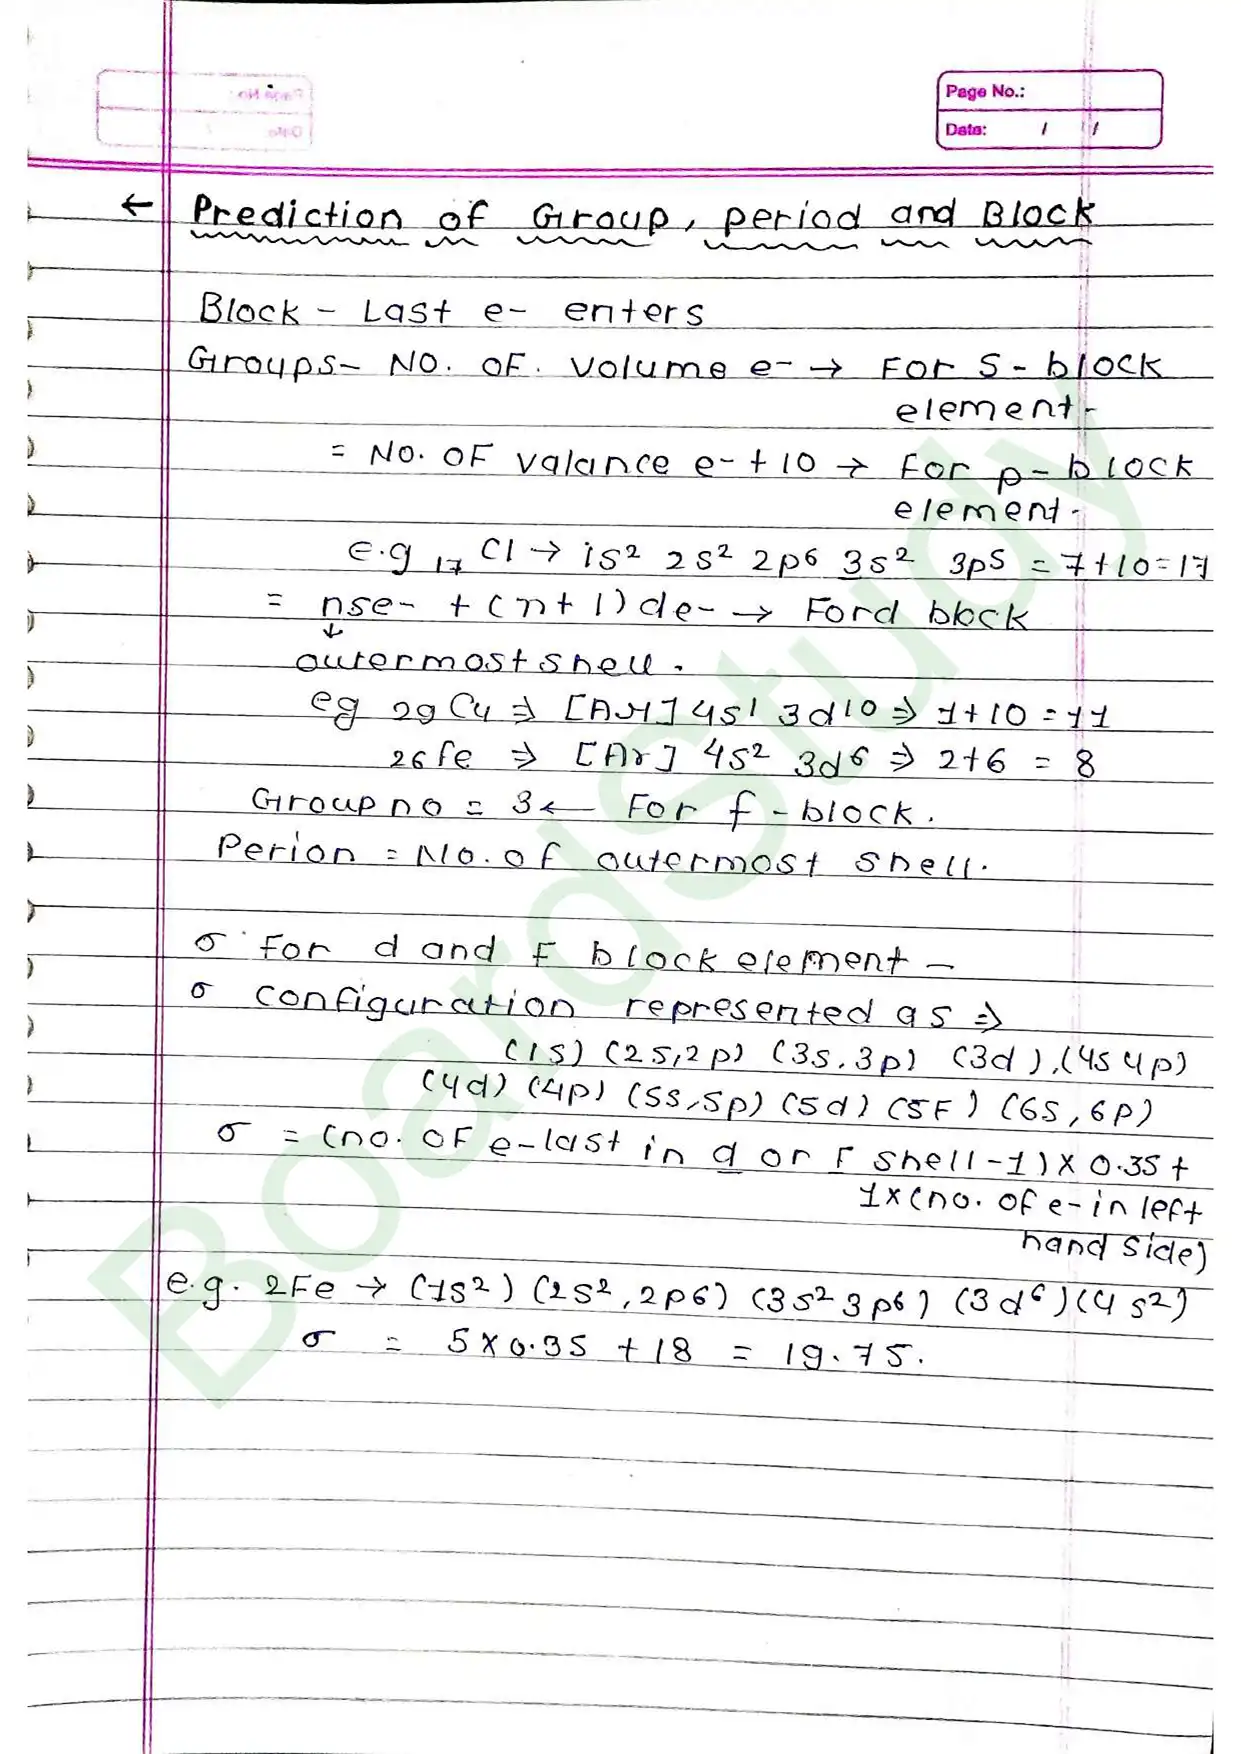 Page No.:
Date: / /
← Prediction of Group, period and Block
Block - Last e- enters
Groups- NO. OF. Volume e- → For S-block
element-
= No. OF valance e- + 10 → For p-block
element-
E.g 17 Cl → is² 2s² 2p6 3s² 3p5 = 7+10=17
= nse- + (n+1)de- → For d block
↓
outermost shell.
eg 29 Cu ⇒ [Ar] 4s1 3d10 ⇒ 1+10 = 11
26 fe ⇒ [Ar] 4s² 3d6 ⇒ 2+6 = 8
Group no = 3 ← For f-block.
Perion = No. of outermost shell.
σ For d and F block element -
σ configuration represented as ⇒
(1s) (2s,2p) (3s.3p) (3d),(4s 4p)
(4d) (4p) (5s,5p) (5d) (5F) (6s,6p)
σ = (no. OF e-last in d or F shell-1) x 0.35 +
1x(no. of e- in left
hand side)
e.g. 2Fe → (1s²) (2s²,2p6) (3s² 3p6) (3d6)(4s²)
σ = 5 x 0.35 + 18 = 19.75.
BoardStudy